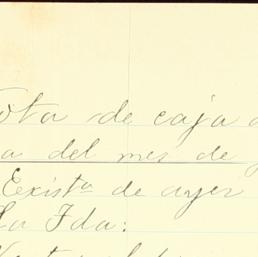 ota de caja d
a del mes de
Existª de ayer
La Fda: